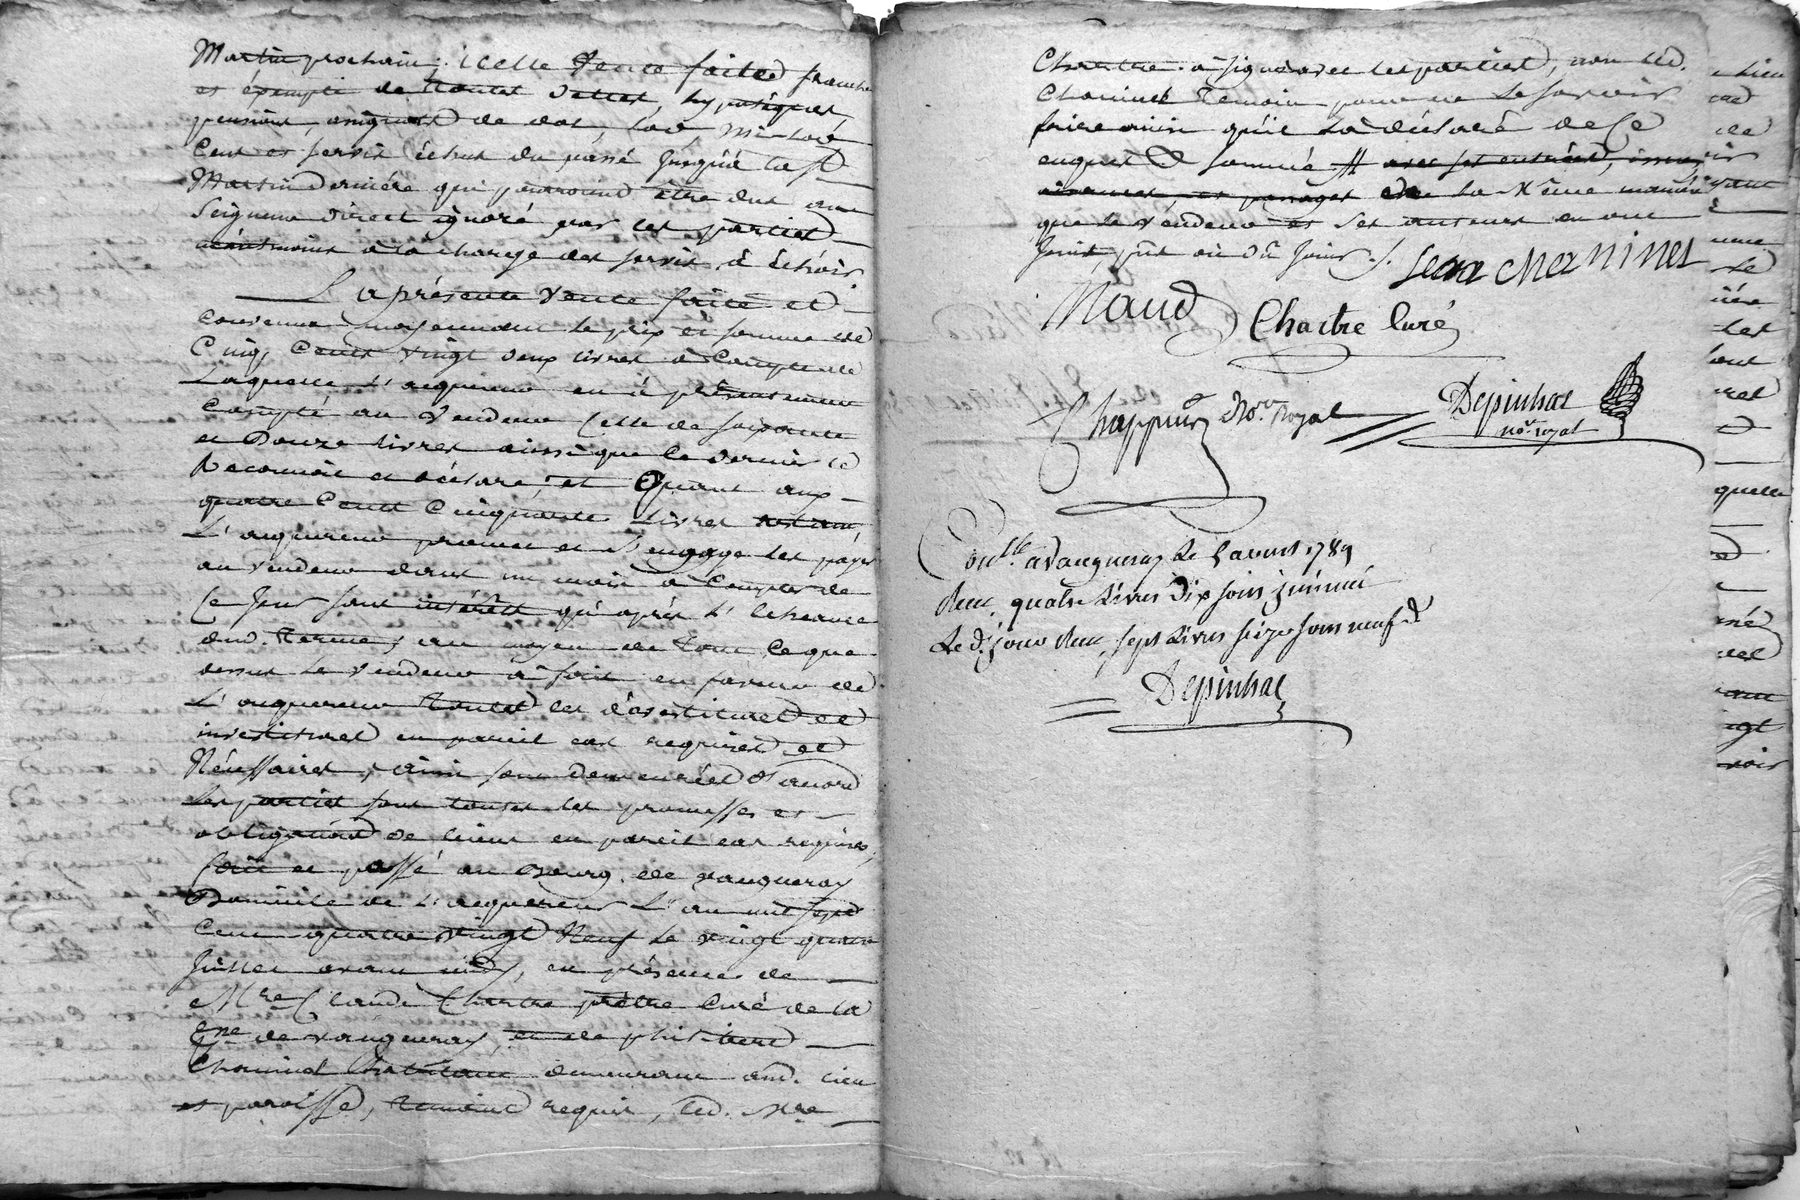 Martin prochain. icelle Vente faitte franche
et éxempte de toutes dettes, hypotéques,
pensions, de dot, lod, mi-lod
Cens et servis échus du passé jusqu'à la St
Martin derniére qui pourroient être dus au
Seigneur direct ignoré par les parties
néantmoins à la charge des servis à échoir
La présente Vente faite et
convenue moyennant le prix et somme de
Cinq Cents vingt deux livres à Compte de
Laquelle L'acquereur en à présentement
compté au Vendeur Celle de soixante
et Douze livres ainsi que ce dernier le
Reconnoit et déclare, et Quant aux
quatre Cents Cinquante Livres restant
L'acquereur promet et s'engage les payer
au vendeur dans un mois à Compter de
Ce Jour sans intérêts qu'après L'echeance
dud. Terme, au moyen de tout Ce que
dessus le vendeur à fait en faveur de
L'acquereur toutes les dévestitures et
investitures en pareil cas requises et
Nécessaires, ainsi sont demeurées d'accord
Les parties sous toutes les promesses et
obligations de biens en pareil cas requises,
fait et passé au Bourg de vaugneray
Domicile de L'acquereur L'an mil sept
Cent quatre vingt Neuf le vingt quatre
Juillet avant midy, en présence de
Mre Claude Chartre prêtre Curé de la
de vaugneray, et de philibert
Chominet habitant demeurant aud. lieu
et paroisse, temoins requis, led. Mre
Chartre à signé avec les parties, non led.
Chominet Temoin pour ne le savoir
faire ainsi qu'il L'a déclaré de Ce
enquis & sommé # avec ses entrées, issues
et passages de la même maniére
que le Vendeur et ses auteurs en ont
Joui, fait oü Dû Jouir.
Jean cheNiNet
Naud
Chartre Curé
Chappuis Nore. Royal
Depinhac
nore. royal
Contllé à Vaugneray le 5 aoust 1789
Reçu quatre Livres Dix sous
Le d. jour Reçu sept Livres seize sous neuf d.
Depinhac
quelle